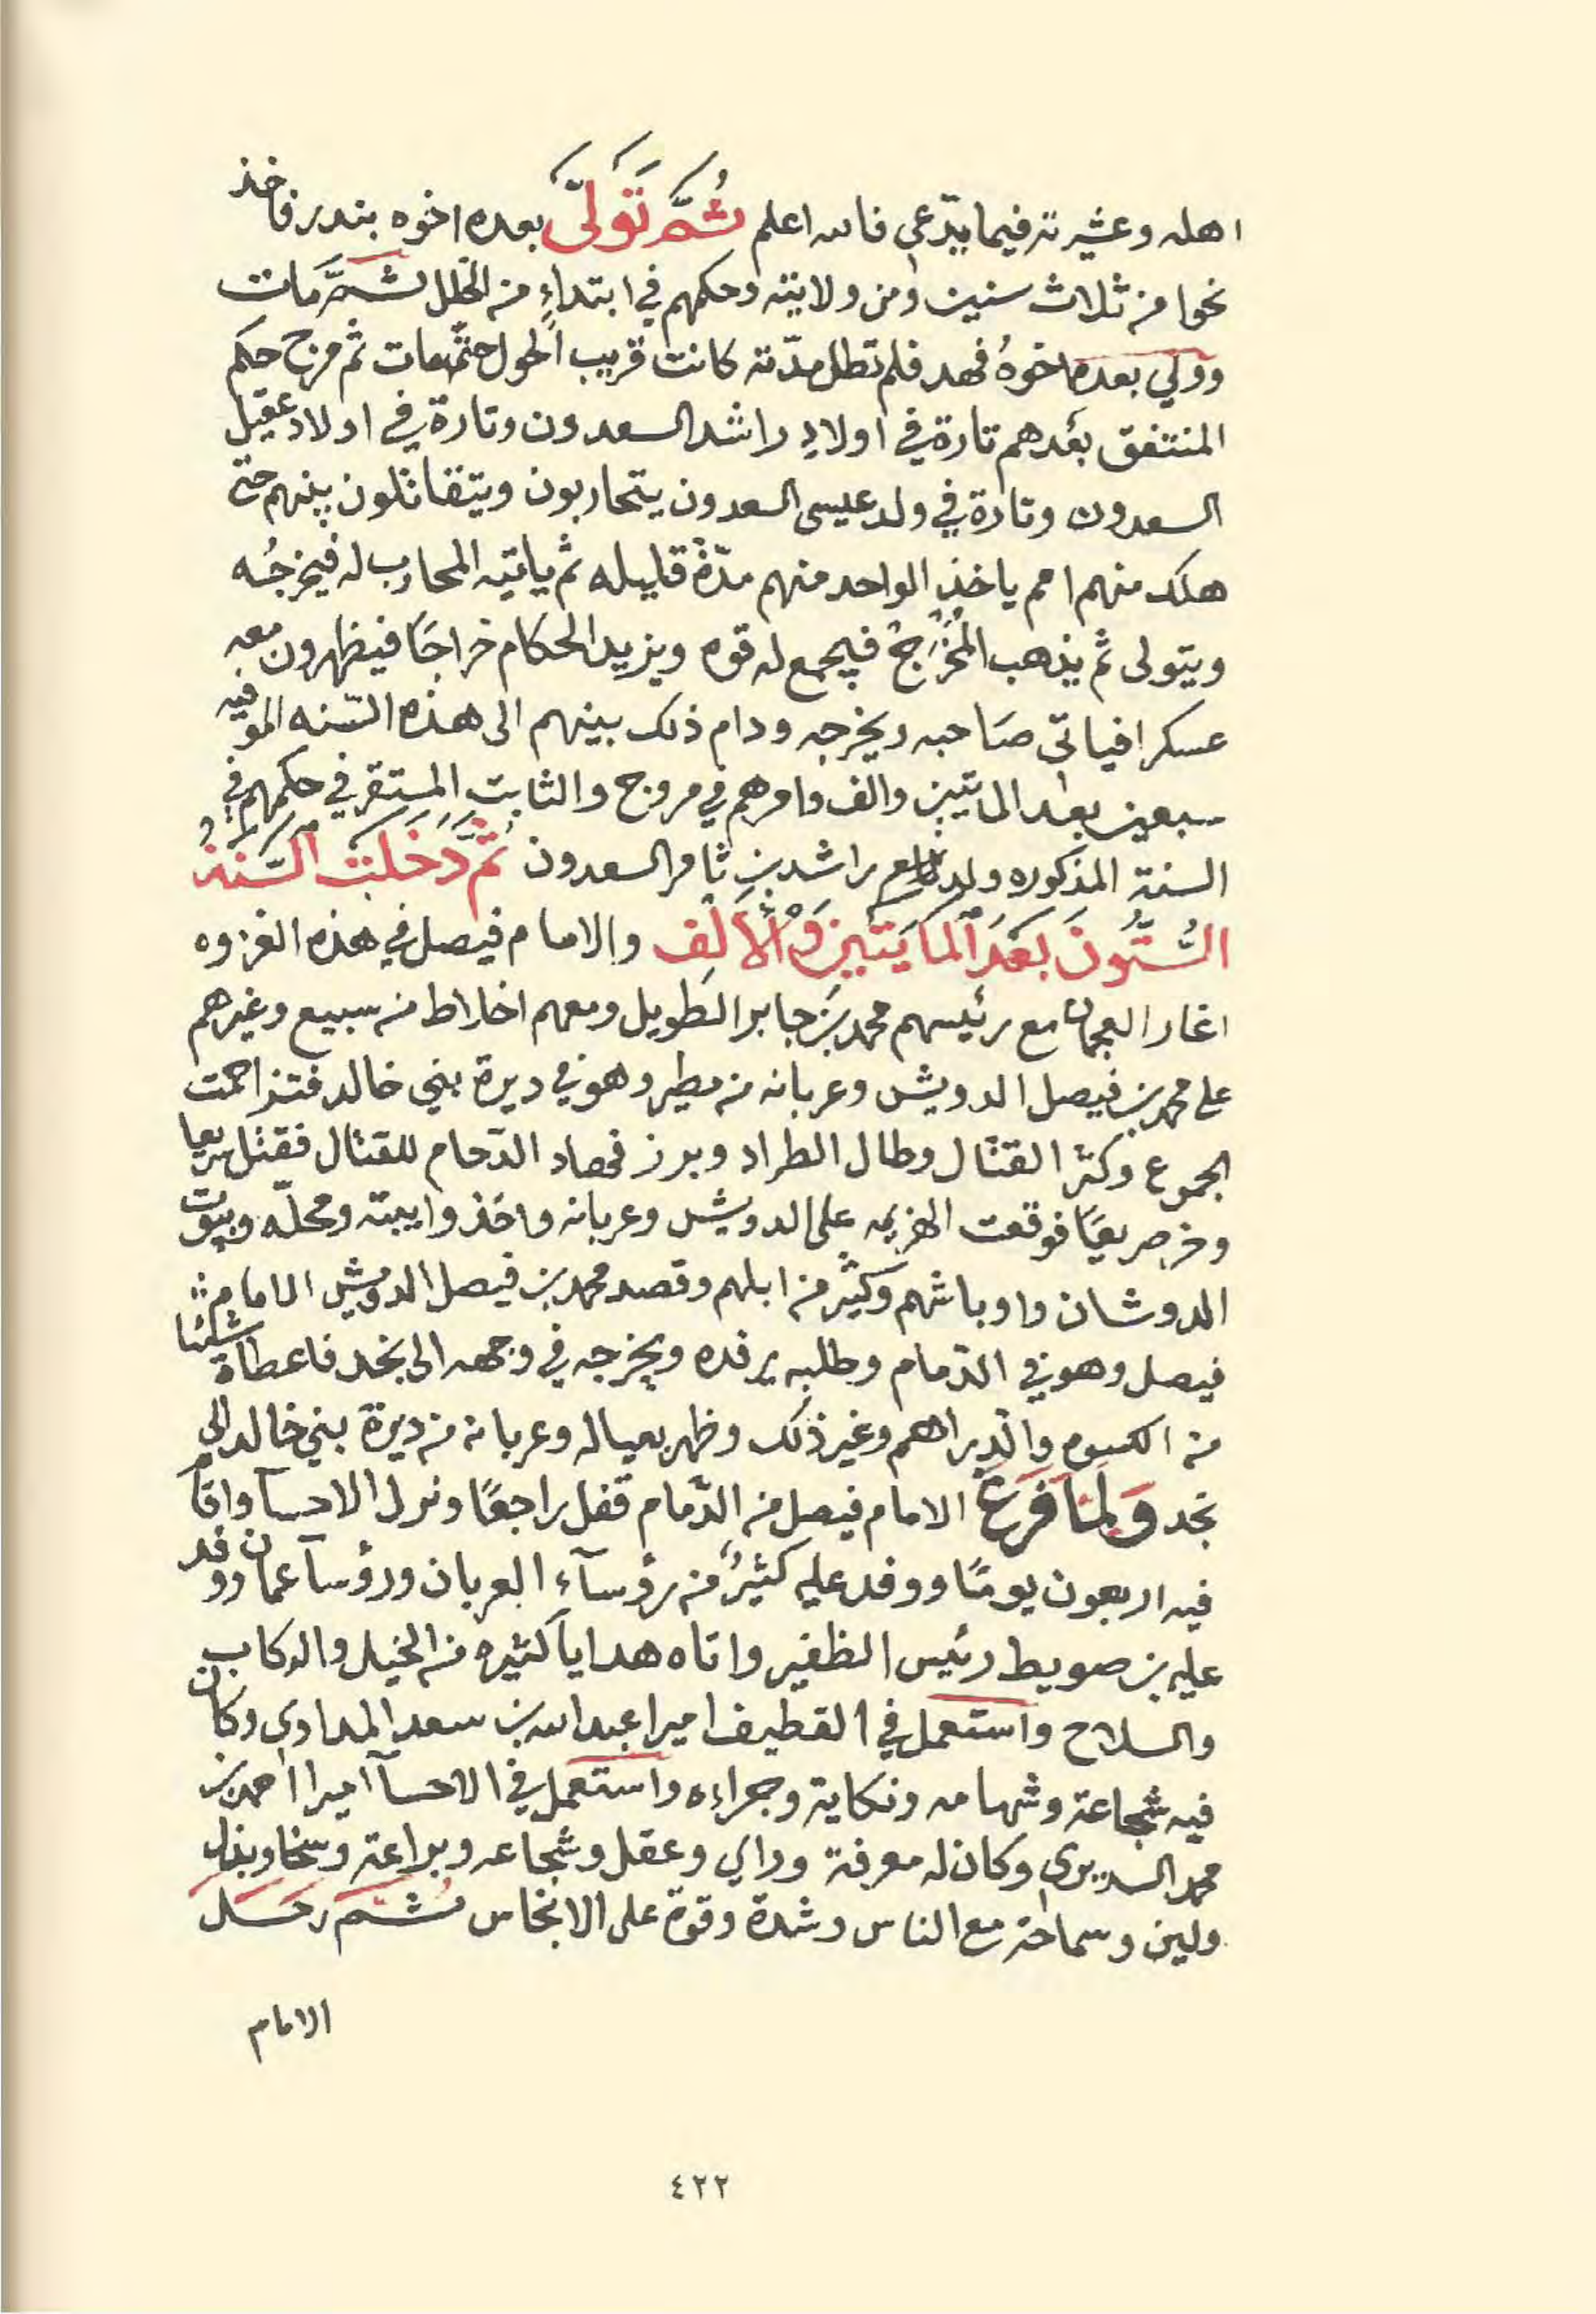 اهله وعشيرته فيما يدّعي فالله اعلم ثُمَّ تَوَلَّى بعده اخوه بندر فاخذ
نحوا من ثلاث سنين ومن ولايته وحكمهم في ابتداءٍ من الخلل ثم مات
وولي بعده اخوهُ فهد فلم تطل مدّته كانت قريب الحول حتّى مات ثم مرج حكم
المنتفق بعدهم تارة في اولاد راشد السعدون وتارة في اولاد عقيل
السعدون وتارة في ولد عيسى السعدون يتحاربون ويتقاتلون بينهم حتى
هلك منهم امم ياخذ الواحد منهم مدّةً قليله ثم ياتيه المحارب له فيخرجُه
ويتولى ثم يذهب المُخْرَجُ فيجمع له قوه ويزيد الحكام خراجًا فيظهرون معه
عسكرا فياتى صَاحبه ويخرجه ودام ذلك بينهم الى هذه السّنه الموفيه
سبعين بعد المايتين والف وامرهم في مروج والثابت المستقر في حكمهم في
السنة المذكوره ولد راشد بن ثامر السعدون ثُمَّ دَخَلَتْ السَّنَةُ
السُّتُّونَ بَعَدَ المايَتَينِ وَالأَلِف والامام فيصل في هذه الغزوه
اغار العجمان مع رئيسهم محمد بن جابر الطويل ومعهم اخلاط من سبيع وغيرهم
على محمد بن فيصل الدويش وعربانه من مطير وهو في ديرة بني خالد فتزاحمت
الجموع وكثر القتال وطال الطراد وبرز فهاد الدّحام للقتال فقتل سريعا
وخر صريعًا فوقعت الهزيمه على الدويش وعربانه واخذوا ابيته ومحلّه وبيوت
الدوشان واوباشهم وكثير من ابلهم وقصد محمد بن فيصل الدويش الامام
فيصل وهو في الدّمام وطلبه يرفده ويخرجه في وجهه الى نجد فاعطاهُ شيئا
من الكسوه والدراهم وغير ذلك وظهر بعياله وعربانه من ديرة بني خالد الى
نجد وَلمَّا فَرَغَ الامام فيصل من الدّمام قفل راجعًا ونزل الاحسآ واقام
فيه اربعون يومًا ووفد عليه كثيرٌ من رؤسآء العربان ورؤسآ عمان ووفد
عليه بن صويط رئيس الظفير واتاه هداياً كثيره من الخيل والركاب
والسلاح واستعمل في القطيف اميرا عبدالله بن سعد المداوى وكان
فيه شجاعة وشهامه ونكاية وجراءه واستعمل في الاحسآ اميرا احمد بن
محمد السديرى وكان له معرفة وراي وعقل وشجاعه وبراعة وسخا وبذل
ولين وسماحة مع الناس وشدة وقوة على الانجاس ثم رحل
الامام
٤٢٢